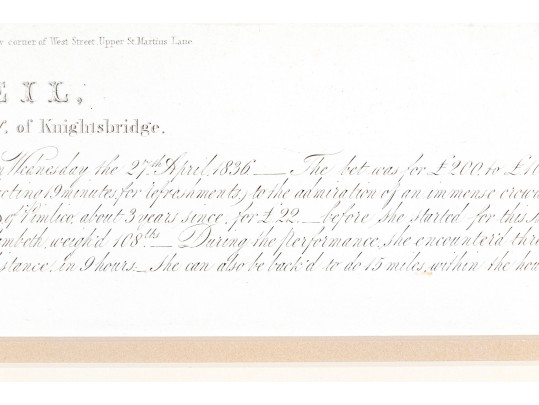 corner of West Street Upper St. Martins Lane
EIL,
of Knightsbridge.
Wednesday the 27th April, 1836 — The bet was for £200 to £10
19 minutes for refreshments, to the admiration of an immense crowd
of Pimlico, about 3 years since, for £22 — before she started for this
weigh'd 108 lbs — During the Performance, she encounter'd
in 9 hours — She can also be back'd to do 15 miles within the hou